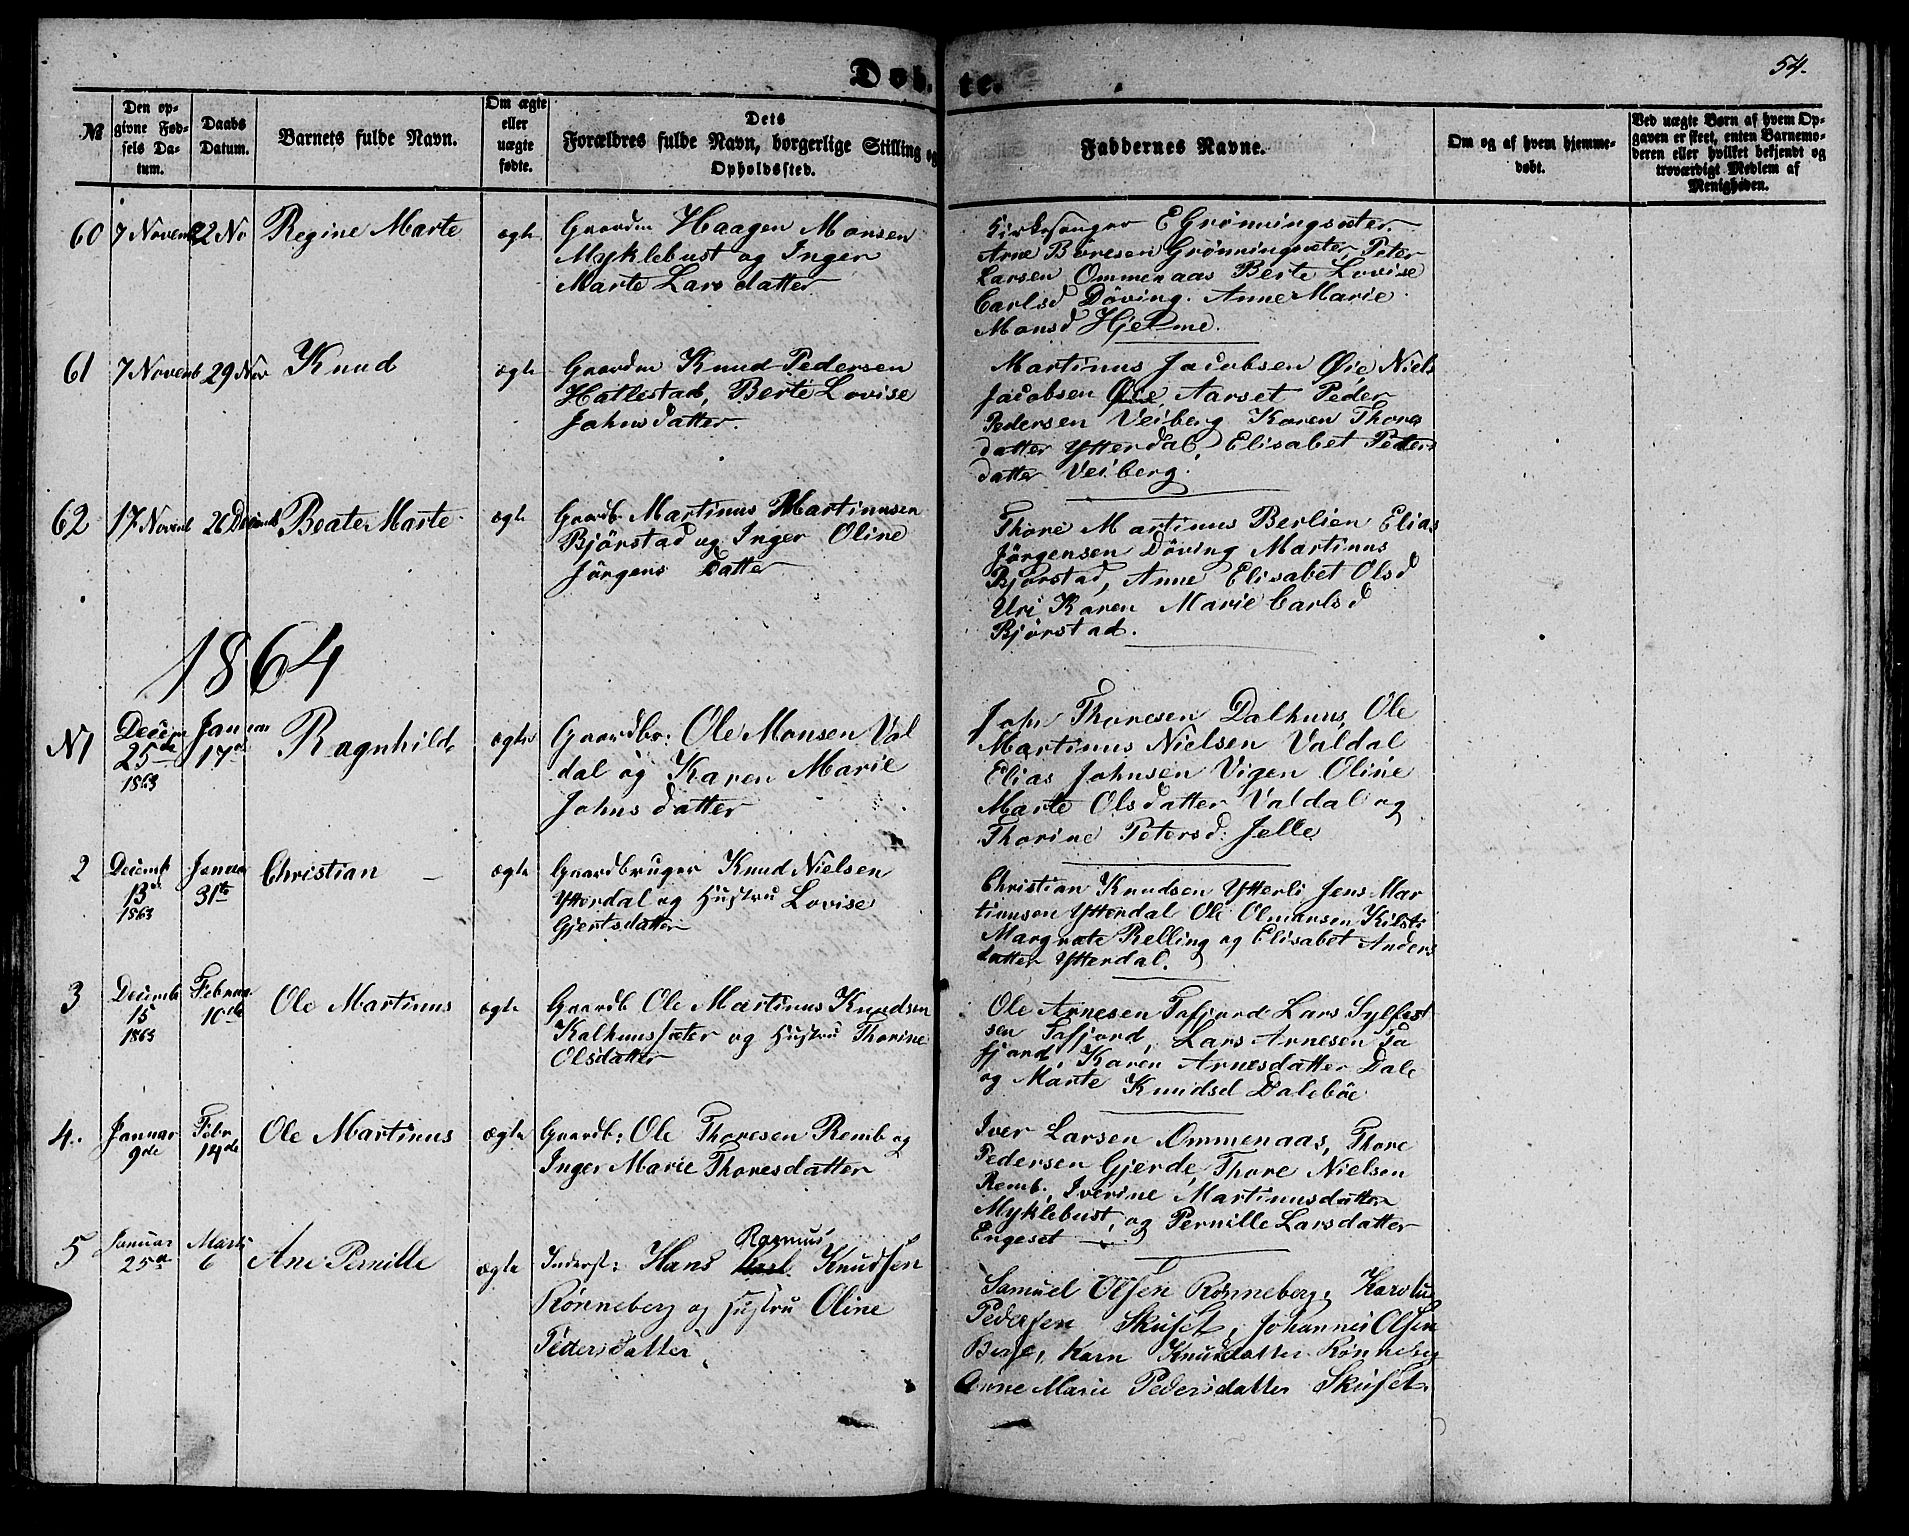 Døb- te. 54.
№
Den opgivne Fødsels Datum.
Daabs Datum.
Barnets fulde Navn.
Om ægte eller uægte fødte.
Dets Forældres fulde Navn, borgerlige Stilling og Opholdssted.
Faddernes Navne.
Om og af hvem hjemmedøbt.
Ved uægte Børn af hvem Opgaven er skeet, enten Barnemoderen eller hvilket bekjendt og troværdigt Medlem af Menigheden.
60 7 Novemb 22 No Regine Marte ægte
Gaardm Haagen Monsen
Myklebust og Inger
Marte Larsdatter
Kirkesanger E Grønningsæter.
Arne Baresen Grønningsæter Peter
Larsen Ommenaas Berte Lovise
Carlsd Døving. Anne Marie
Monsd Hjelme.
61 7 Novemb 29 Nov Knud ægte
Gaardm Knud Pedersen
Hatlestad, Berte Lovise
Johnsdatter.
Martinus Jacobsen Øie Niels
Jacobsen Øie Aarset Peder
Pedersen Veiberg Karen Thores
datter Ytterdal, Elisabet Peders
datter Veiberg.
62 17 Novemb 26 Decemb Beate Marte ægte
Gaardb Martinus Martinusen
Bjørstad og Inger Oline
Jørgens Datter
Thore Martinus Berlien Elias
Jørgensen Døving Martinus
Bjørstad, Anne Elisabet Olsd
Uri Karen Marie Carlsd
Bjørstad.
1864
N1 Decem 25de 1863 Januar 17de Ragnhilde ægte
Gaardbr: Ole Monsen Val
dal og Karen Marie
Johnsdatter
John Thoresen Dalhuus, Ole
Martinus Nielsen Valdal
Elias Johnsen Vigen Oline
Marte Olsdatter Valdal og
Thorine Petersd: Jelle
2 Decemb 13de 1863 Januar 31te Christian – ægte
Gaardbruger Knud Nielsen
Ytterdal og Hustru Lovise
Gjertsdatter
Christian Knudsen Ytterli Jens Mar
tinusen Ytterdal Ole Olmansen Kilsti
Margrate Relling og Elisabet Anders
datter Ytterdal.
3 Decemb 15 1863 Februar 10de Ole Martinus ægte
Gaardb Ole Martinus Knudsen
Kalhussæter og Hustru Thorine
Olsdatter
Ole Arnesen Tafjord Lars Sylfest
sen Tafjord, Lars Arnesen Ta
fjord, Karen Arnesdatter Dale
og Marte Knudsd Dalebøe
4. Januar 9de Febr 14de Ole Martinus ægte
Gaardb: Ole Thoresen Remb og
Inger Marie Thoresdatter
Iver Larsen Ommenaas, Thore
Pedersen Gjerde, Thore Nielsen
Remb. Iverine Martinusdatter
Myklebust, og Pernille Larsdatter
Engeset
5 Januar 25de Marts 6 Ane Pernille ægte
Rasmus
Inderst: Hans Knudsen
Rønneberg og Hustru Oline
Pedersdatter
Samuel Olsen Rønneberg, Karolus
Pedersen Skuset, Johannes Olsen
Berse, Karn Knudsdatter Rønneberg
Anne Marie Pedersdatter Skuset.